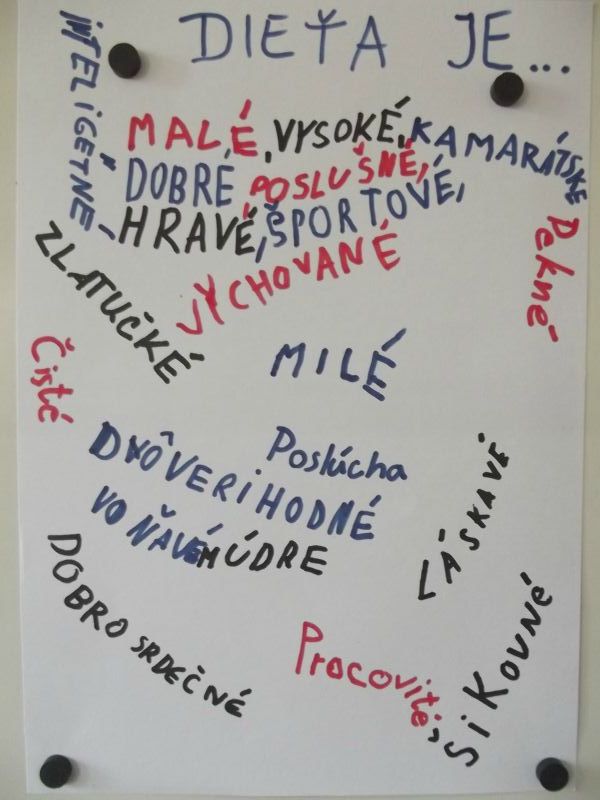 DIEŤA JE...
INTELIGETNÉ
MALÉ, VYSOKÉ, KAMARÁTSKE
DOBRÉ, POSLUŠNÉ,
HRAVÉ, ŠPORTOVÉ,
VYCHOVANÉ
Pekné
ZLATUČKÉ
Čisté
MILÉ
Poslúcha
DVÔVERIHODNÉ
VOŇAVÉ
MÚDRE
LÁSKAVÉ
DOBROSRDEČNÉ
Pracovité,
SiKOVNÉ